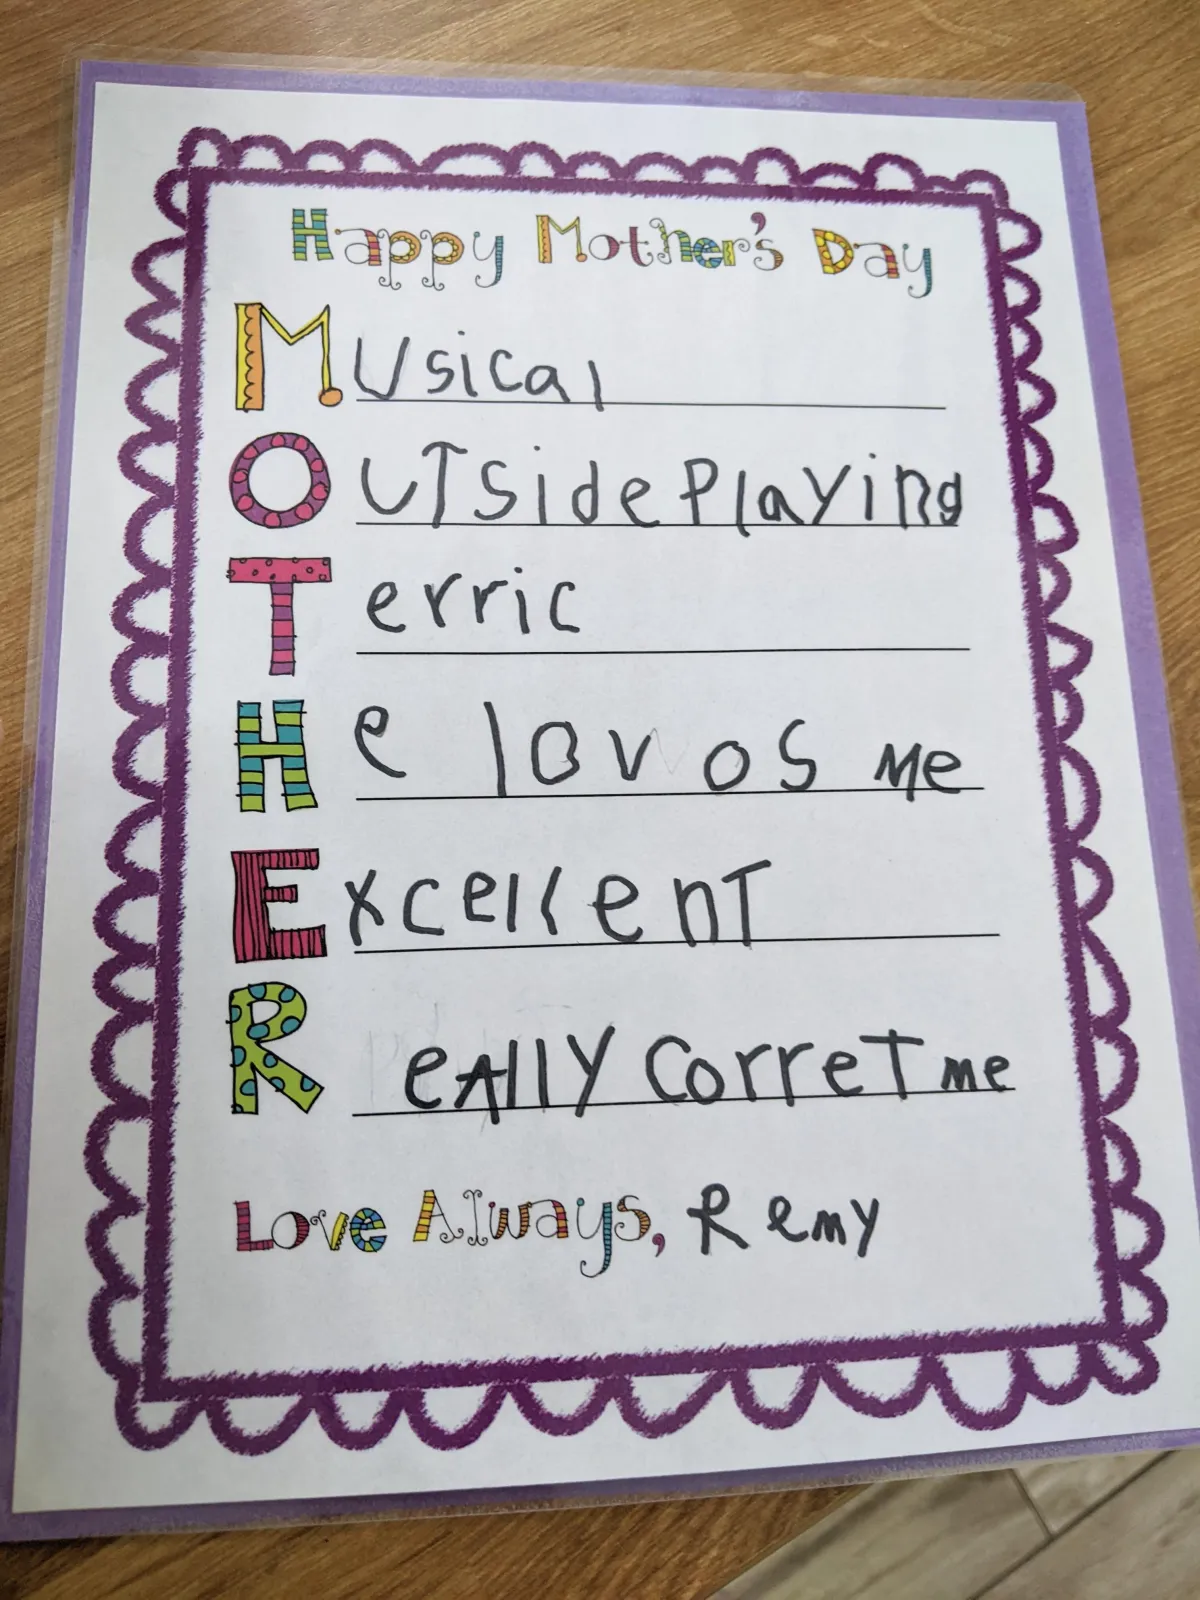 Happy Mother's Day
Musical
OUTSide Playing
Terric
He lovos Me
ExcellenT
ReAlly CorreT me
Love Always, Remy